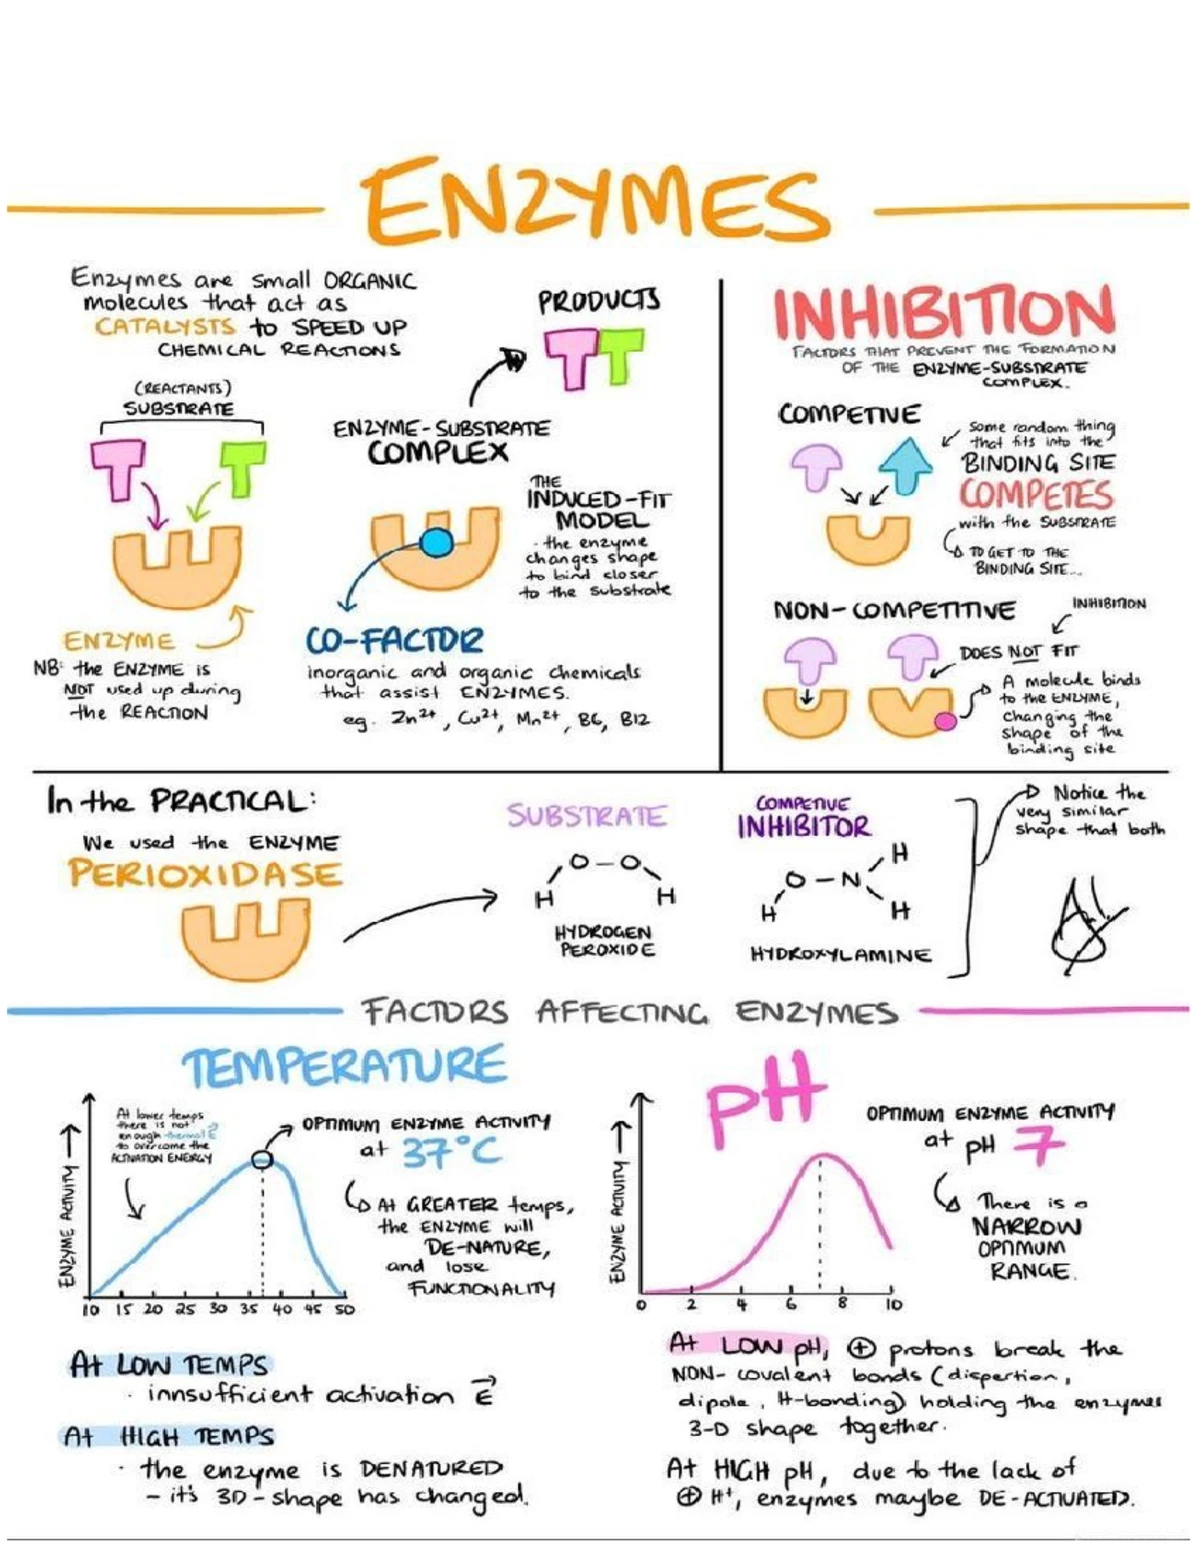 ENZYMES
Enzymes are small ORGANIC
molecules that act as
CATALYSTS to SPEED UP
CHEMICAL REACTIONS
(REACTANTS)
SUBSTRATE
ENZYME
NB: the ENZYME is
NOT used up during
the REACTION
PRODUCTS
ENZYME-SUBSTRATE
COMPLEX
THE
INDUCED-FIT
MODEL
- the enzyme
changes shape
to bind closer
to the substrate
CO-FACTOR
inorganic and organic chemicals
that assist ENZYMES.
eg. Zn2+, Cu2+, Mn2+, B6, B12
INHIBITION
FACTORS THAT PREVENT THE FORMATION
OF THE ENZYME-SUBSTRATE
COMPLEX.
COMPETIVE
Some random thing
that fits into the
BINDING SITE
COMPETES
with the SUBSTRATE
TO GET TO THE
BINDING SITE...
NON-COMPETITIVE
INHIBITION
DOES NOT FIT
A molecule binds
to the ENZYME,
changing the
shape of the
binding site
In the PRACTICAL:
We used the ENZYME
PERIOXIDASE
SUBSTRATE
O-O
H H
HYDROGEN
PEROXIDE
COMPETIVE
INHIBITOR
H
O-N
H H
HYDROXYLAMINE
Notice the
very similar
shape that both
FACTORS AFFECTING ENZYMES
TEMPERATURE
At lower temps
there is not
enough thermal E
to overcome the
ACTIVATION ENERGY
OPTIMUM ENZYME ACTIVITY
at 37°C
At GREATER temps,
the ENZYME will
DE-NATURE,
and lose
FUNCTIONALITY
ENZYME ACTIVITY
10 15 20 25 30 35 40 45 50
At LOW TEMPS
· innsufficient activation E
At HIGH TEMPS
· the enzyme is DENATURED
- it's 3D-shape has changed.
pH
OPTIMUM ENZYME ACTIVITY
at pH 7
There is a
NARROW
OPTIMUM
RANGE.
ENZYME ACTIVITY
0 2 4 6 8 10
At LOW pH, ⊕ protons break the
NON-covalent bonds (dispertion,
dipole, H-bonding) holding the enzymes
3-D shape together.
At HIGH pH, due to the lack of
⊕ H+, enzymes maybe DE-ACTIVATED.